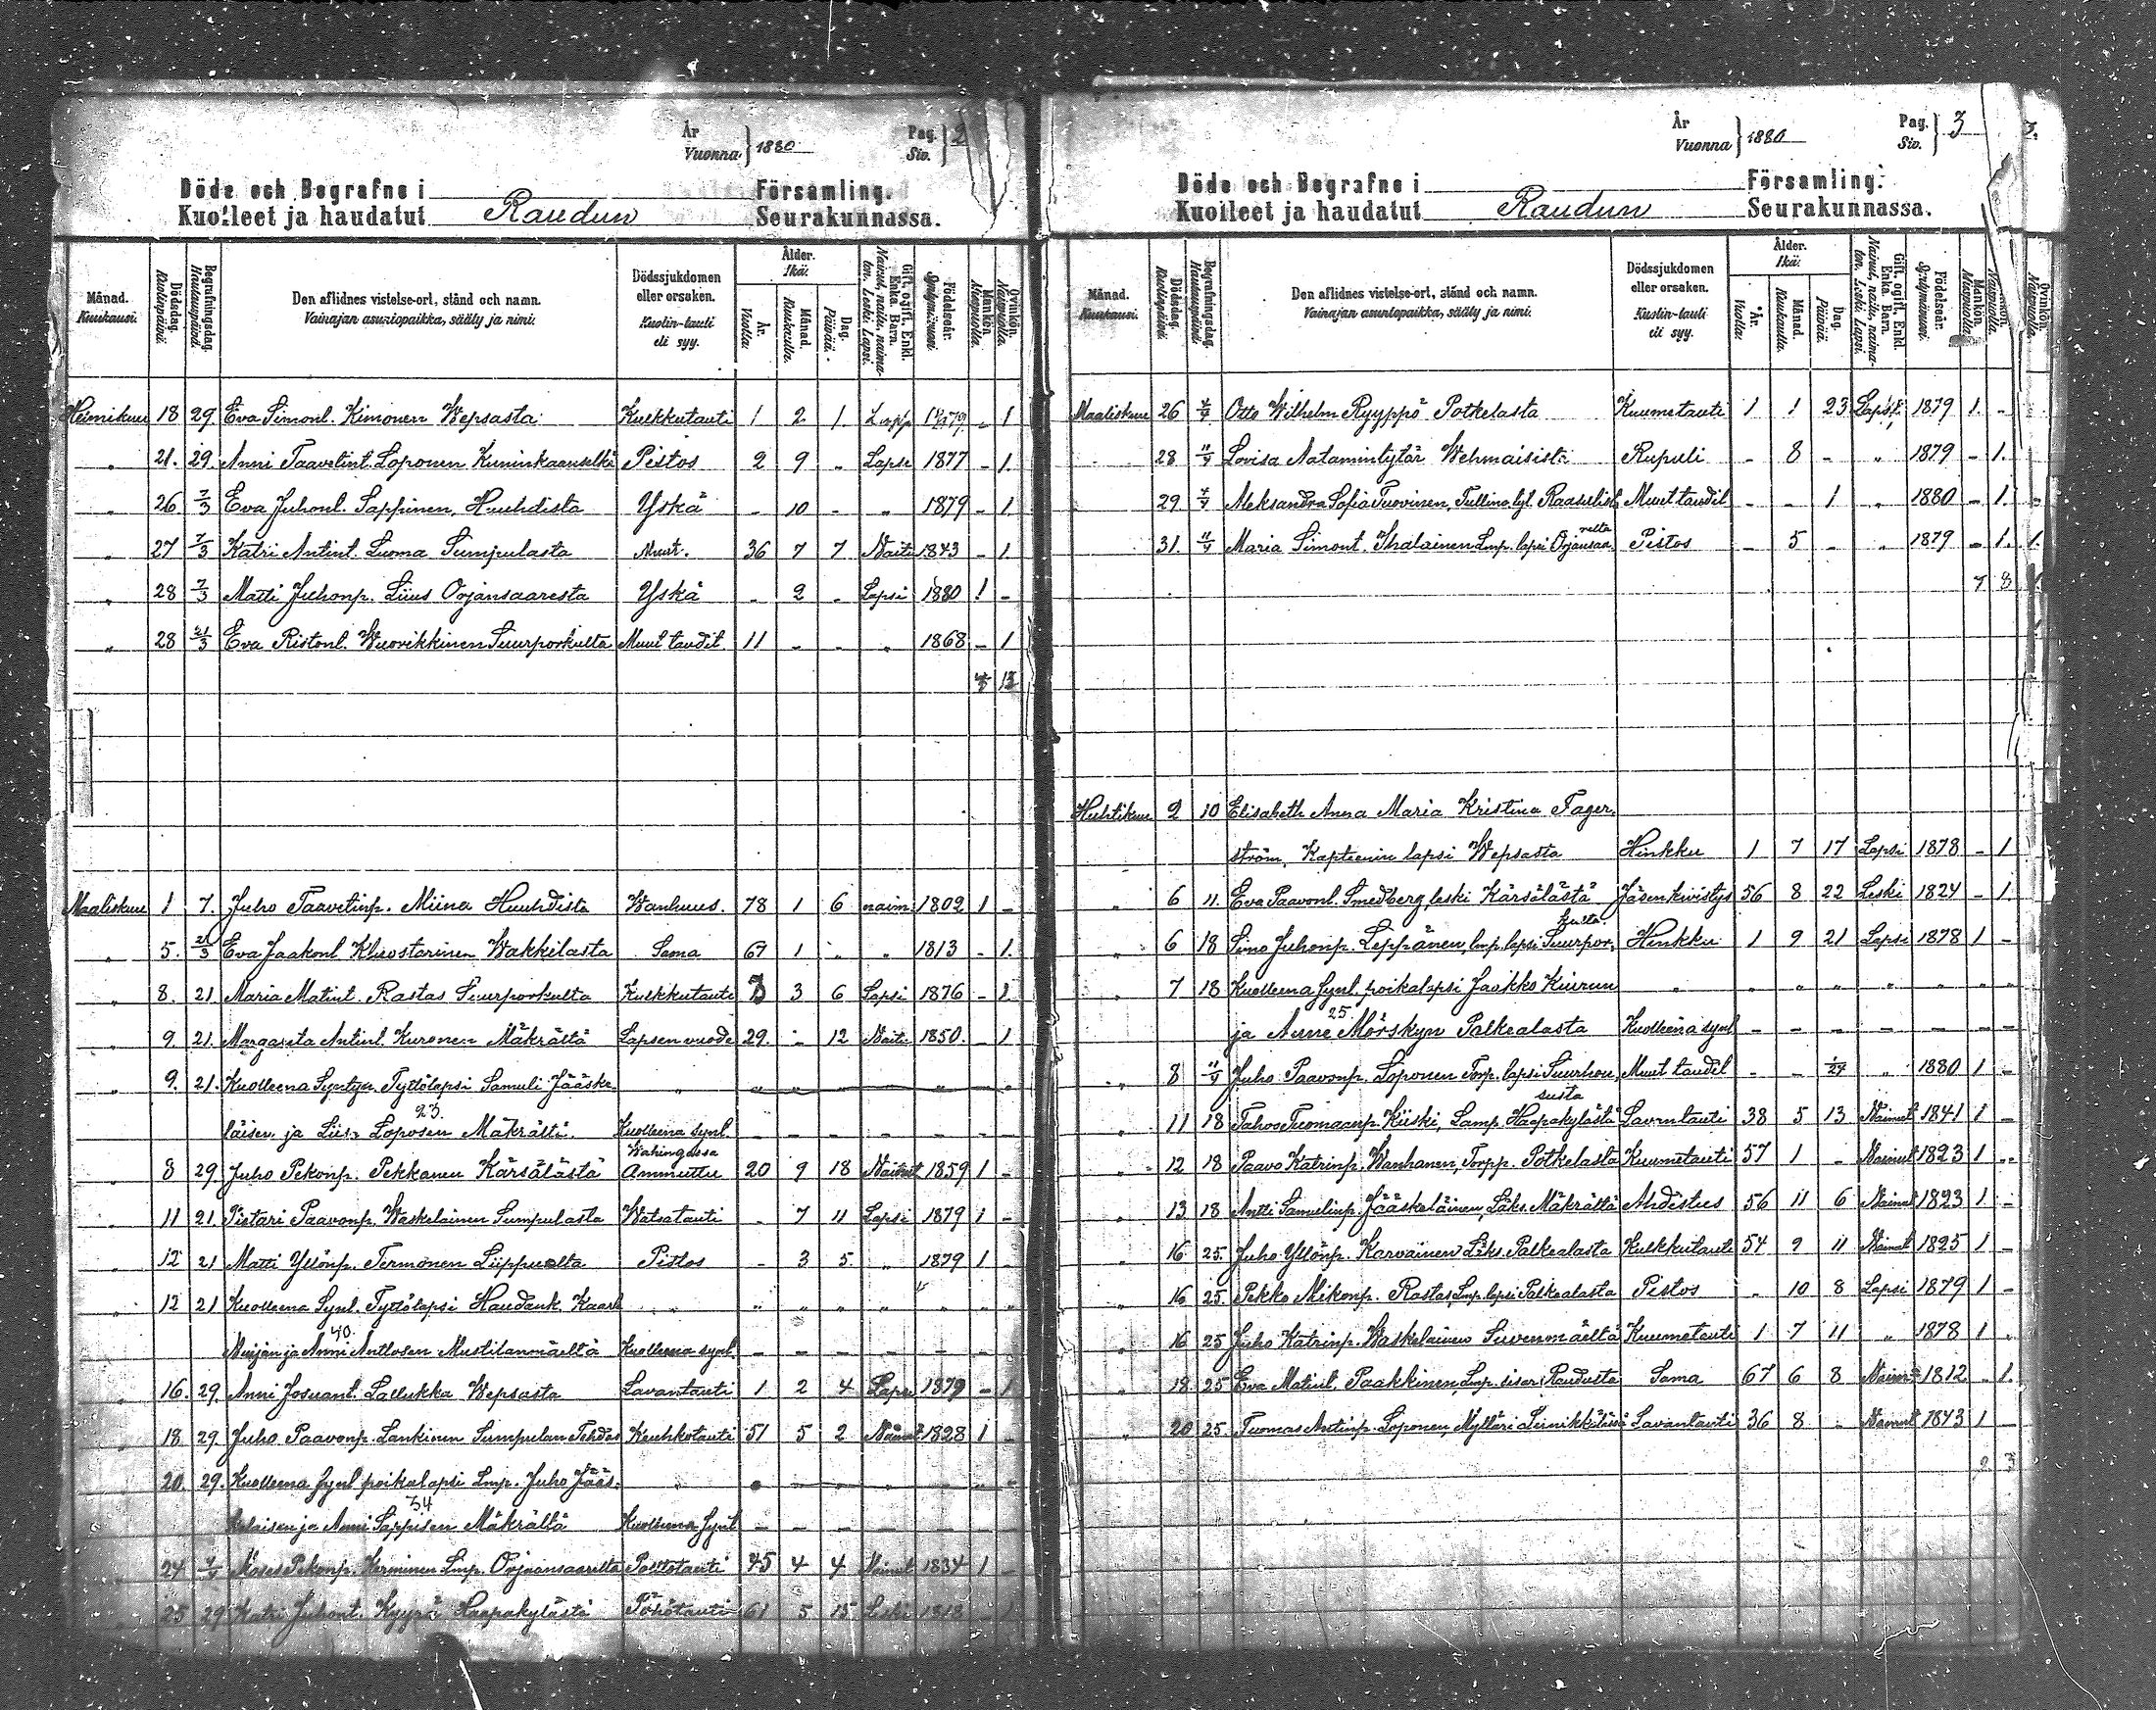 År
Vuonna } 1880
Pag.
Siv. } 2
Döde och Begrafne i Församling.
Kuolleet ja haudatut Raudun Seurakunnassa.
Månad. Kuukausi.
Dödsdag. Kuolinpäivä.
Begrafningsdag. Hautauspäivä.
Den aflidnes vistelse-ort, stånd och namn.
Vainajan asuntopaikka, sääty ja nimi.
Dödssjukdomen eller orsaken.
Kuolin-tauti eli syy.
Ålder. Ikä:
År. Vuotta:
Månad. Kuukautta.
Dag. Päivää.
Gift, ogift, Enkl. Enka. Barn.
Nainut, naitu, naimaton. Leski. Lapsi.
Födelseår. Syntymävuosi.
Mankön. Miespuolta.
Qvinkön. Naispuolta.
Helmikuu 18 29. Eva Simont. Kimonen Wepsasta Kulkkutauti 1 2 1. 1879 - 1
" 21. 29. Anni Taavetint. Loponen Kuninkaanselkä Pistos 2 9 - Lapsi 1877 - 1.
" 26. 7/3 Eva Juhont. Sappinen, Huuhdista Yskä - 10 - " 1879 - 1.
" 27 7/3 Katri Antint. Luoma Sumpulasta Muut. 36 7 7 Naitu 1843 - 1
" 28 7/3 Matti Juhonp. Liius Orjansaaresta Yskä - 2 - Lapsi 1880 1 -
" 28 21/3 Eva Ristont. Wuorikkinen Suurporkulta Muut taudit 11 - - " 1868 - 1
13
Maaliskuu 1 7. Juho Taavetinp. Miina Huuhdista Wanhuus. 78 1 6 naim. 1802 1 -
" 5. 21/3 Eva Jaakont Kluostarinen Wakkilasta Sama 67 1 " " 1813 - 1.
" 8. 21 Maria Matint. Rastas Suurporkulta Kulkkutauti 3 3 6 Lapsi 1876 - 1.
" 9. 21. Margareta Antint. Kuronen Mäkrältä Lapsen vuode 29 - 12 Naitu 1850. - 1
" 9. 21. Kuolleena Syntyn. Tyttölapsi Samuli Jääske-
läisen ja Liisa Loposen 23 Mäkrältä. Kuolleena synt. - - - - - -
8 29. Juho Pekonp. Pekkanen Kärsälästä Wahingossa Ammuttu 20 9 18 Nainut 1859 1 -
" 11 21 Pietari Paavonp. Waskelainen Sumpulasta Watsatauti - 7 11 Lapsi 1879 1 -
" 12 21 Matti Yllönp. Termonen Liippualta Pistos - 3 5. " 1879 1 -
" 12 21 Kuolleena Synt. Tyttölapsi Haudank. Kaarl
ja Anni 40. Anttosen Mustilanmäeltä Kuolleena synt. - - - - - -
" 16. 29. Anni Josuant. Lallukka Wepsasta Lavantauti 1 2 4 Lapsi 1879 - 1
" 18. 29. Juho Paavonp. Lankinen Sumpulan Tehdas Keuhkotauti 51 5 2 Nainut 1828 1 -
20. 29. Kuolleena synt poikalapsi Lmp. Juho Jääs-
kelaisen ja Anni 34 Sappisen Mäkrältä Kuolleena Synt - - - - - -
24 4/4 Moses Pekonp. Herminen Lmp. Orjansaarelta Polttotauti 45 4 4 Nainut 1834 1 -
25 29 Katri Juhont. Kyyrö Haapakylästä Pöhötauti 61 5 15 Leski 1818
År
Vuonna } 1880
Pag.
Siv. } 3
Döde och Begrafne i Församling.
Kuolleet ja haudatut Raudun Seurakunnassa.
Månad. Kuukausi.
Dödsdag. Kuolinpäivä.
Begrafningsdag. Hautauspäivä.
Den aflidnes vistelse-ort, stånd och namn.
Vainajan asuntopaikka, sääty ja nimi.
Dödssjukdomen eller orsaken.
Kuolin-tauti eli syy.
Ålder. Ikä:
År. Vuotta:
Månad. Kuukautta.
Dag. Päivää.
Gift, ogift, Enkl. Enka. Barn.
Nainut, naitu, naimaton. Leski. Lapsi.
Födelseår. Syntymävuosi.
Mankön. Miespuolta.
Naispuolta.
Qvinkön. Naispuolta.
Maaliskuu 26 4/4 Otto Wilhelm Ryyppö Potkelasta Kuumetauti 1 1 23 Lapsi. 1879 1. -
28 11/4 Lovisa Natamintytär Wehmaisista Rupuli - 8 - " 1879 - 1.
29 4/4 Aleksandra Sofia Tuovinen, Tullino tyt. Muut taudit - - 1 " 1880 - 1.
31. 11/4 Maria Simont. Ihalainen Lmp. lapsi Orjansaarelta Pistos - 5 - " 1879 - 1. 1.
7 8
Huhtikuu 2 10 Elisabeth Anna Maria Kristina Fager-
ström, Kapteenin lapsi Wepsasta Hinkku 1 7 17 Lapsi 1878 - 1
" 6 11. Eva Paavont. Smedberg, leski Kärsälästä Jäsenkivistys 56 8 22 Leski 1824 - 1.
" 6 18 Simo Juhonp. Leppänen, lmp. lapsi Suurporkulta Hinkku 1 9 21 Lapsi 1878 1 -
" 7 18 Kuolleena synt. poikalapsi Jaakko Kiurun " " " " " " "
ja Anne 25 Mörskyn Palkealasta Kuolleena synt - - - - - -
" 8 11/4 Juho Paavonp. Loponen Torp. lapsi Suurhoususta Muut taudit - - 1/24 " 1880 1 -
" 11 18 Tahvo Tuomaanp. Kiiski, Lamp. Haapakylästä Lavantauti 38 5 13 Nainut 1841 1 -
" 12 18 Paavo Katrinp. Wanhanen, Torpp. Potkelasta Kuumetauti 57 1 - Nainut 1823 1 -
" 13 18 Antti Samulinp. Jääskeläinen, Läks. Mäkrältä Ahdistus 56 11 6 Nainut 1823 1 -
" 16 25. Juho Yllönp. Karvainen Läks. Palkealasta Kulkkutauti 54 9 11 Nainut 1825 1 -
" 16 25. Pekko Mikonp. Rastas, Lmp. lapsi Palkealasta Pistos " 10 8 Lapsi 1879 1 -
" 16 25 Juho Katrinp. Waskelainen Suvenmäeltä Kuumetauti 1 7 11 " 1878 1
" 18 25 Eva Matint. Paakkinen Lmp. sisar Raudusta Sama 67 6 8 1812 " 1.
" 20 25. Tuomas Antinp. Loponen, Mylläri Lavantauti 36 8 - Nainut 1843 1 -